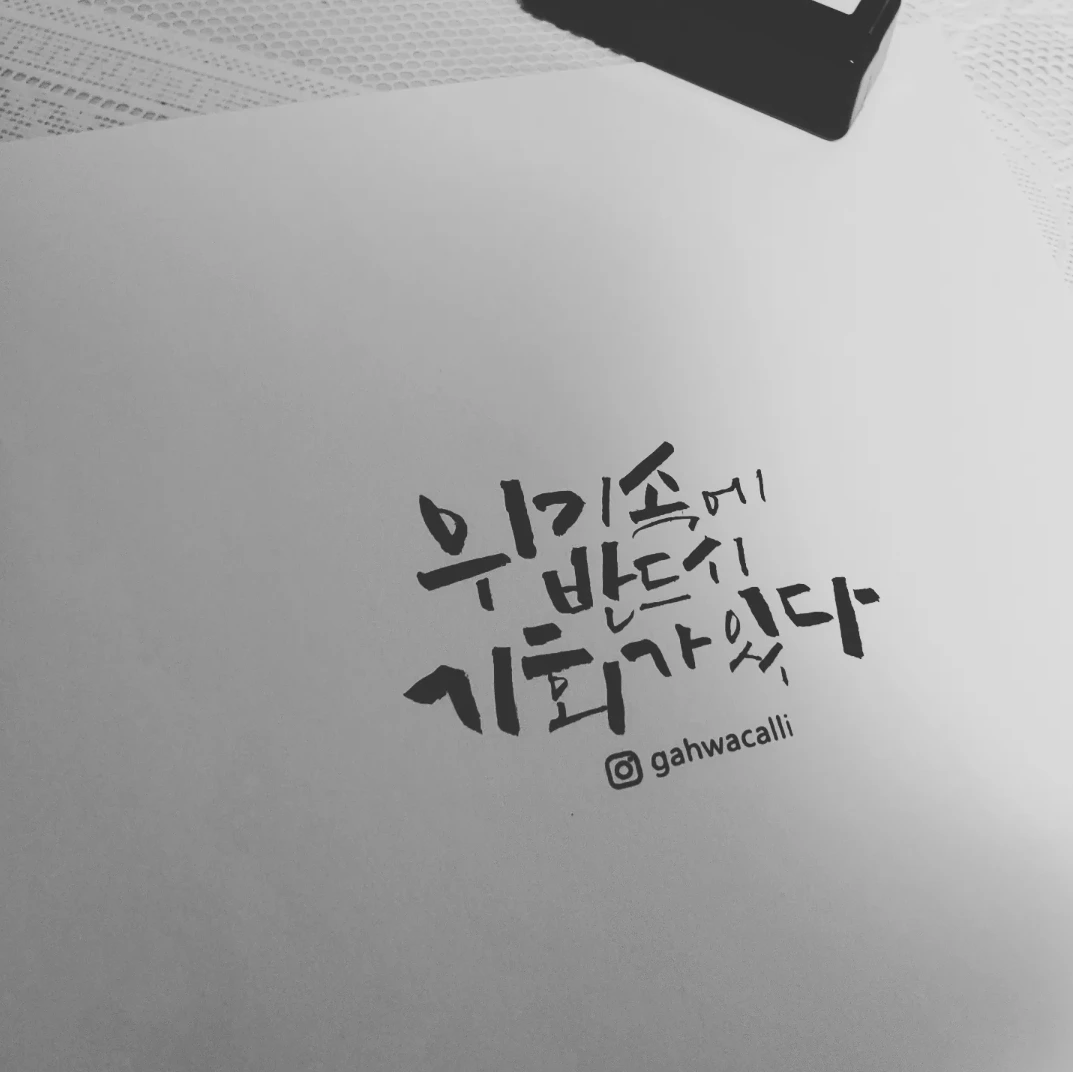 위기속에
반드시
기회가 있다
gahwacalli